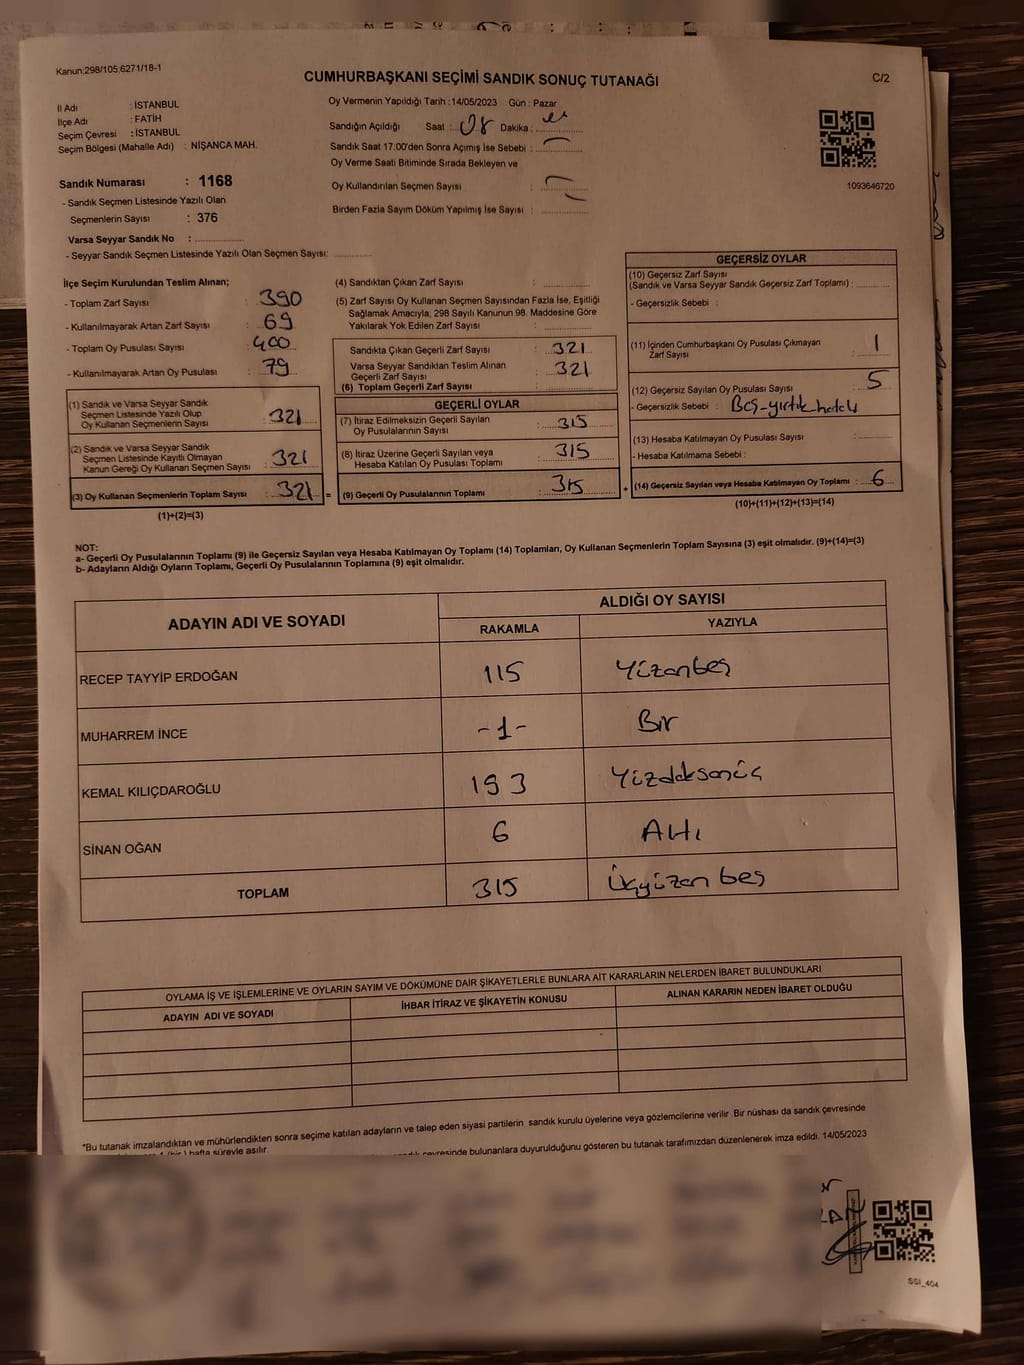 Kanun:298/105:6271/18-1
CUMHURBAŞKANI SEÇİMİ SANDIK SONUÇ TUTANAĞI
C/2
İl Adı : İSTANBUL
İlçe Adı : FATİH
Seçim Çevresi : İSTANBUL
Seçim Bölgesi (Mahalle Adı) : NİŞANCA MAH.
Sandık Numarası : 1168
- Sandık Seçmen Listesinde Yazılı Olan
Seçmenlerin Sayısı : 376
Varsa Seyyar Sandık No :
- Seyyar Sandık Seçmen Listesinde Yazılı Olan Seçmen Sayısı:
Oy Vermenin Yapıldığı Tarih : 14/05/2023 Gün : Pazar
Sandığın Açıldığı Saat : 08 Dakika :
Sandık Saat 17:00'den Sonra Açımış İse Sebebi :
Oy Verme Saati Bitiminde Sırada Bekleyen ve
Oy Kullandırılan Seçmen Sayısı :
Birden Fazla Sayım Döküm Yapılmış İse Sayısı :
1093646720
İlçe Seçim Kurulundan Teslim Alınan;
- Toplam Zarf Sayısı : 390
- Kullanılmayarak Artan Zarf Sayısı : 69
- Toplam Oy Pusulası Sayısı : 400
- Kullanılmayarak Artan Oy Pusulası : 79
(1) Sandık ve Varsa Seyyar Sandık
Seçmen Listesinde Yazılı Olup
Oy Kullanan Seçmenlerin Sayısı : 321
(2) Sandık ve Varsa Seyyar Sandık
Seçmen Listesinde Kayıtlı Olmayan
Kanun Gereği Oy Kullanan Seçmen Sayısı : 321
(3) Oy Kullanan Seçmenlerin Toplam Sayısı : 321 =
(1)+(2)=(3)
(4) Sandıktan Çıkan Zarf Sayısı :
(5) Zarf Sayısı Oy Kullanan Seçmen Sayısından Fazla İse, Eşitliği
Sağlamak Amacıyla; 298 Sayılı Kanunun 98. Maddesine Göre
Yakılarak Yok Edilen Zarf Sayısı :
Sandıkta Çıkan Geçerli Zarf Sayısı : 321
Varsa Seyyar Sandıktan Teslim Alınan
Geçerli Zarf Sayısı : 321
(6) Toplam Geçerli Zarf Sayısı :
GEÇERLİ OYLAR
(7) İtiraz Edilmeksizin Geçerli Sayılan
Oy Pusulalarının Sayısı : 315
(8) İtiraz Üzerine Geçerli Sayılan veya
Hesaba Katılan Oy Pusulası Toplamı : 315
(9) Geçerli Oy Pusulalarının Toplamı : 315 +
GEÇERSİZ OYLAR
(10) Geçersiz Zarf Sayısı
(Sandık ve Varsa Seyyar Sandık Geçersiz Zarf Toplamı) :
- Geçersizlik Sebebi :
(11) İçinden Cumhurbaşkanı Oy Pusulası Çıkmayan
Zarf Sayısı : 1
(12) Geçersiz Sayılan Oy Pusulası Sayısı : 5
- Geçersizlik Sebebi : Boş-yırtık-hatalı
(13) Hesaba Katılmayan Oy Pusulası Sayısı :
- Hesaba Katılmama Sebebi :
(14) Geçersiz Sayılan veya Hesaba Katılmayan Oy Toplamı : 6
(10)+(11)+(12)+(13)=(14)
NOT:
a- Geçerli Oy Pusulalarının Toplamı (9) ile Geçersiz Sayılan veya Hesaba Katılmayan Oy Toplamı (14) Toplamları, Oy Kullanan Seçmenlerin Toplam Sayısına (3) eşit olmalıdır. (9)+(14)=(3)
b- Adayların Aldığı Oyların Toplamı, Geçerli Oy Pusulalarının Toplamına (9) eşit olmalıdır.
ADAYIN ADI VE SOYADI
ALDIĞI OY SAYISI
RAKAMLA YAZIYLA
RECEP TAYYİP ERDOĞAN 115 Yüzonbeş
MUHARREM İNCE -1- Bir
KEMAL KILIÇDAROĞLU 193 Yüzdoksanüç
SİNAN OĞAN 6 Altı
TOPLAM 315 Üçyüzonbeş
OYLAMA İŞ VE İŞLEMLERİNE VE OYLARIN SAYIM VE DÖKÜMÜNE DAİR ŞİKAYETLERLE BUNLARA AİT KARARLARIN NELERDEN İBARET BULUNDUKLARI
ADAYIN ADI VE SOYADI İHBAR İTİRAZ VE ŞİKAYETİN KONUSU ALINAN KARARIN NEDEN İBARET OLDUĞU
*Bu tutanak imzalandıktan ve mühürlendikten sonra seçime katılan adayların ve talep eden siyasi partilerin sandık kurulu üyelerine veya gözlemcilerine verilir. Bir nüshası da sandık çevresinde
1 (bir) hafta süreyle asılır.
çevresinde bulunanlara duyurulduğunu gösteren bu tutanak tarafımızdan düzenlenerek imza edildi. 14/05/2023
SGI_404